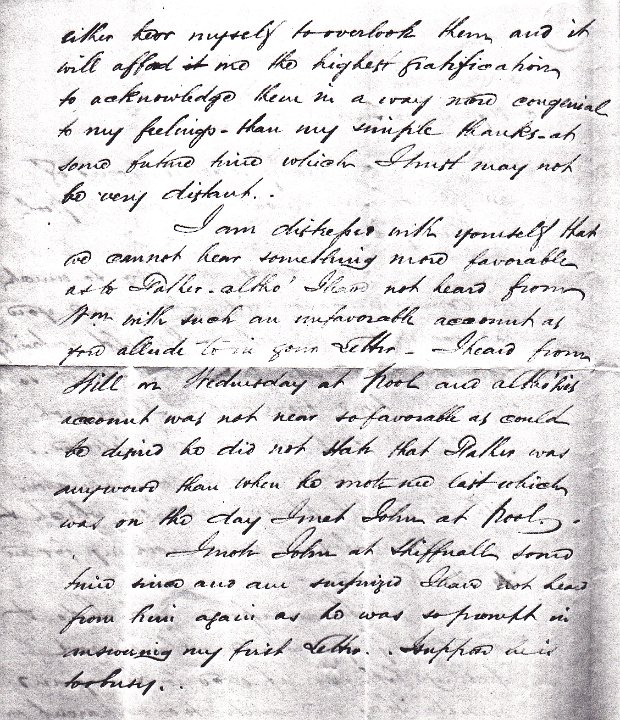 either hear myself to overlook them and it
will afford it me the highest gratification
to acknowledge them in a way more congenial
to my feelings - than my simple thanks - at
some future time which I trust may not
be very distant. -
I am distressed with yourself that
we cannot hear something more favorable
as to Father - altho' I have not heard from
Wm with such an unfavorable account as
you allude to in your Letter - I heard from
Still on Wednesday at Pool and altho' his
account was not near so favorable as could
be desired he did not state that Father was
anyworse than when he wrote me last which
was on the day I met John at Pool. -
I wrote John at Shiffnall some
time since and am surprized I have not hear
from him again as he was so prompt in
answering my first Letter. . I suppose he is
too busy. .